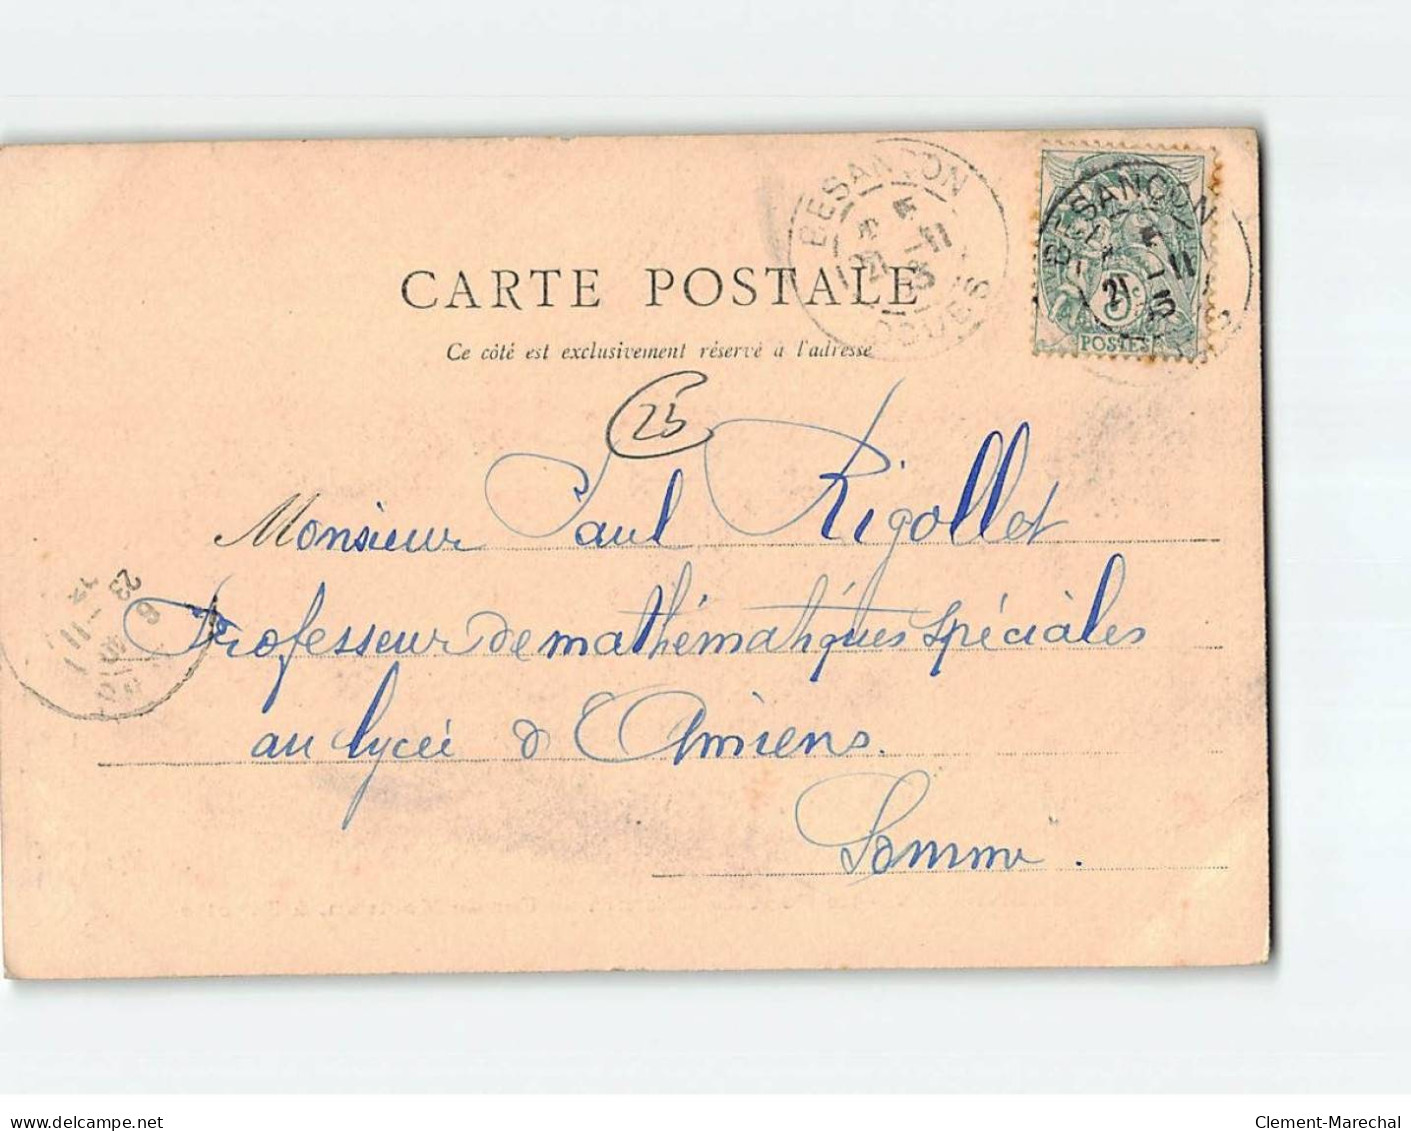 BESANÇON
DOUBS
BESANÇON
5 c
POSTES
CARTE POSTALE
Ce côté est exclusivement réservé à l'adresse
25
Monsieur Paul Rigollet
Professeur de mathématiques spéciales
au lycée d'Amiens.
Somme.
delcampe.net
Clement-Marechal